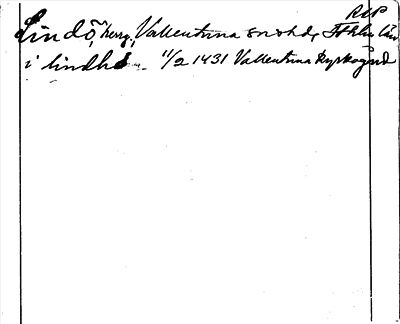 RAP
Lindö, herrg, Vallentuna sn o hd, Sthlm län
i lindhö 11/2 1431 Vallentuna kyrkogård